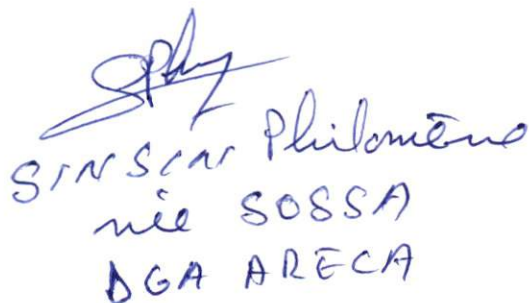 SINSIN Philomène
née SOSSA
DGA ARECA